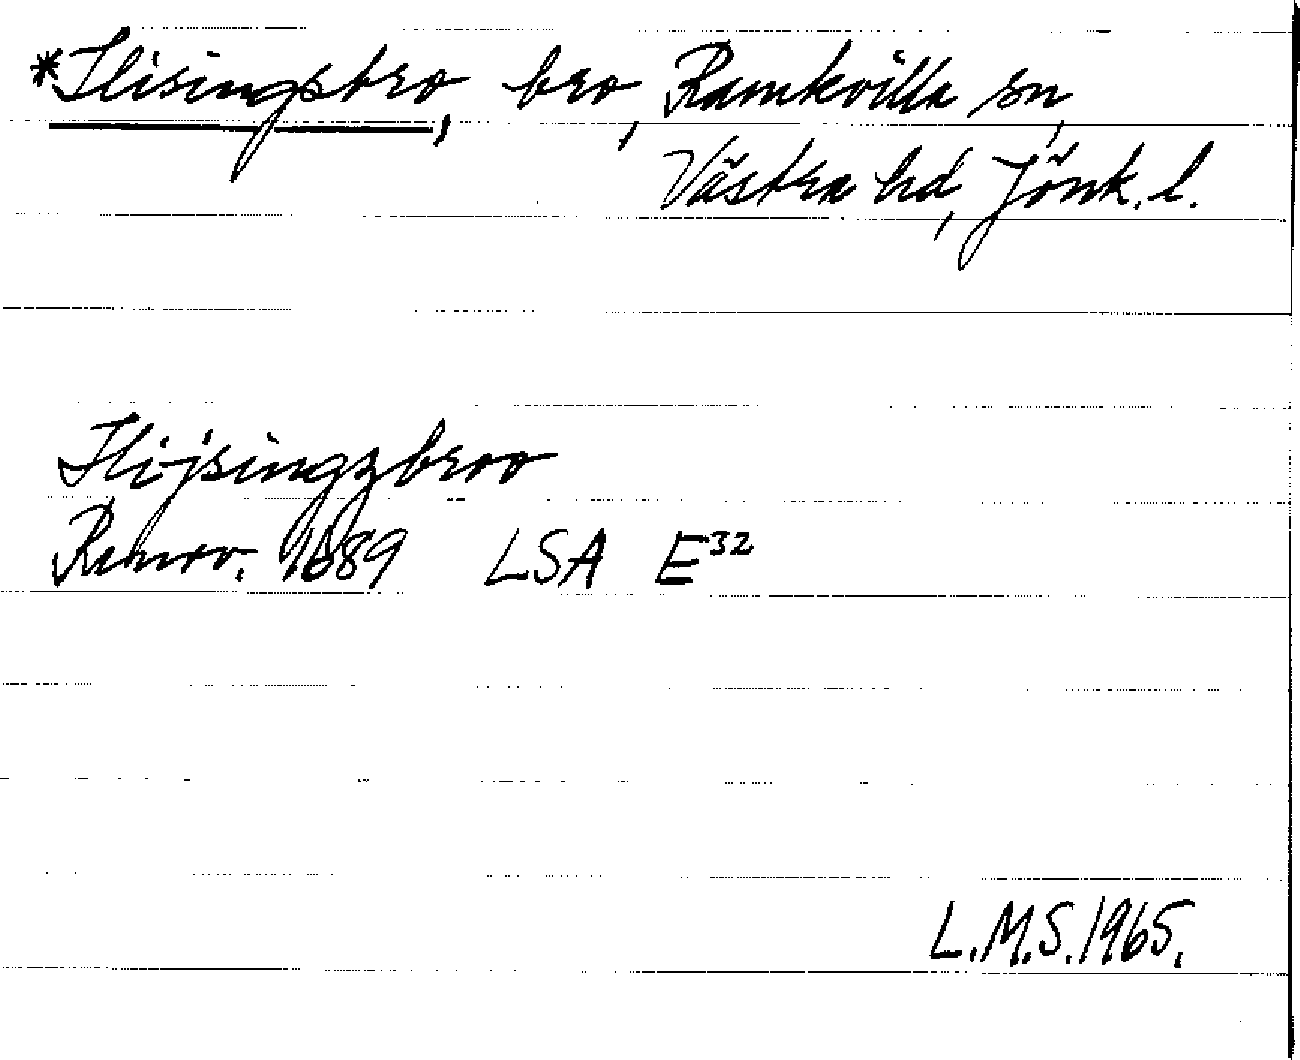 *Hisingsbro, bro, Ramkvilla sn,
Västra hd, Jönk. l.
Hijsingzbroo
Rannrv. 1689 LSA E32
L.M.S. 1965.